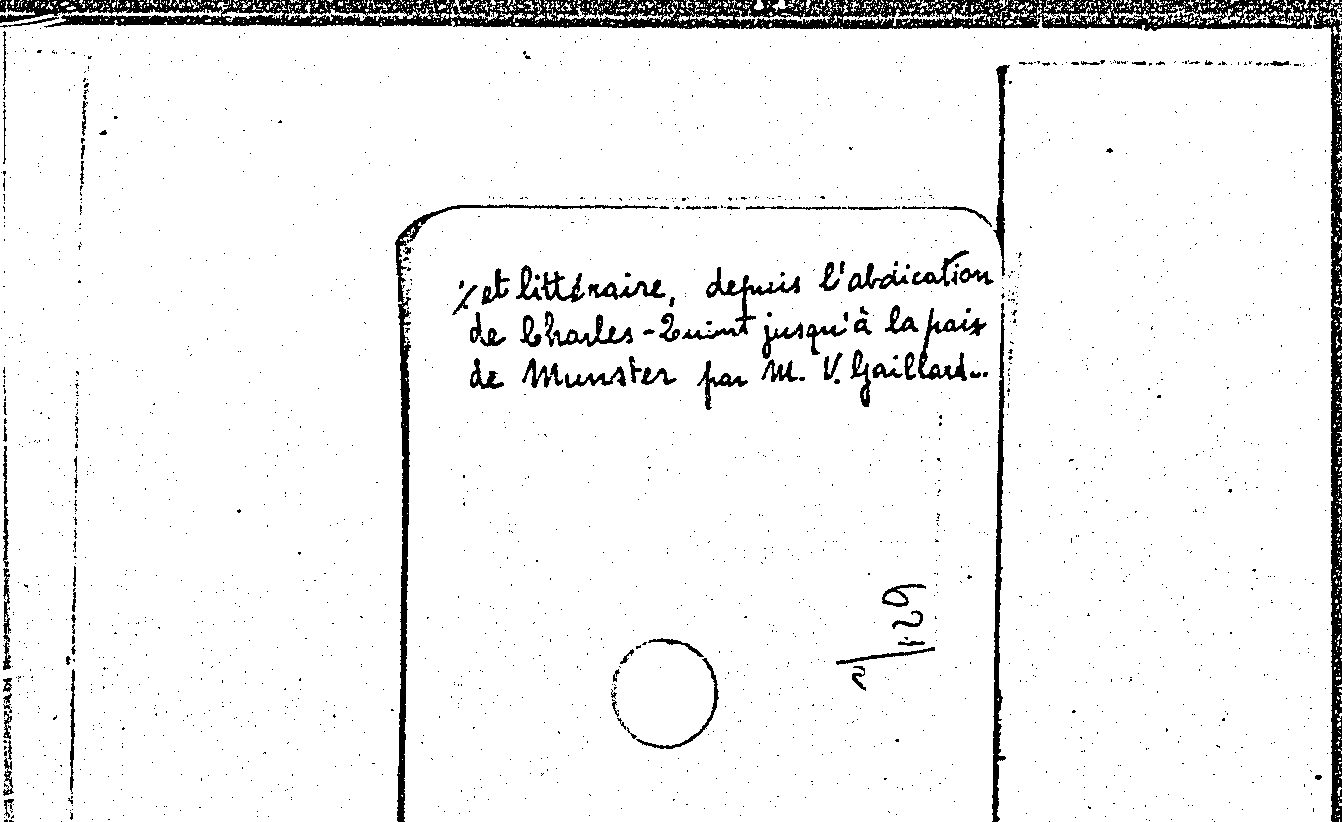 ./. et littéraire, depuis l'abdication
de Charles-Quint jusqu'à la paix
de Munster par M. V. Gaillard..
129
2